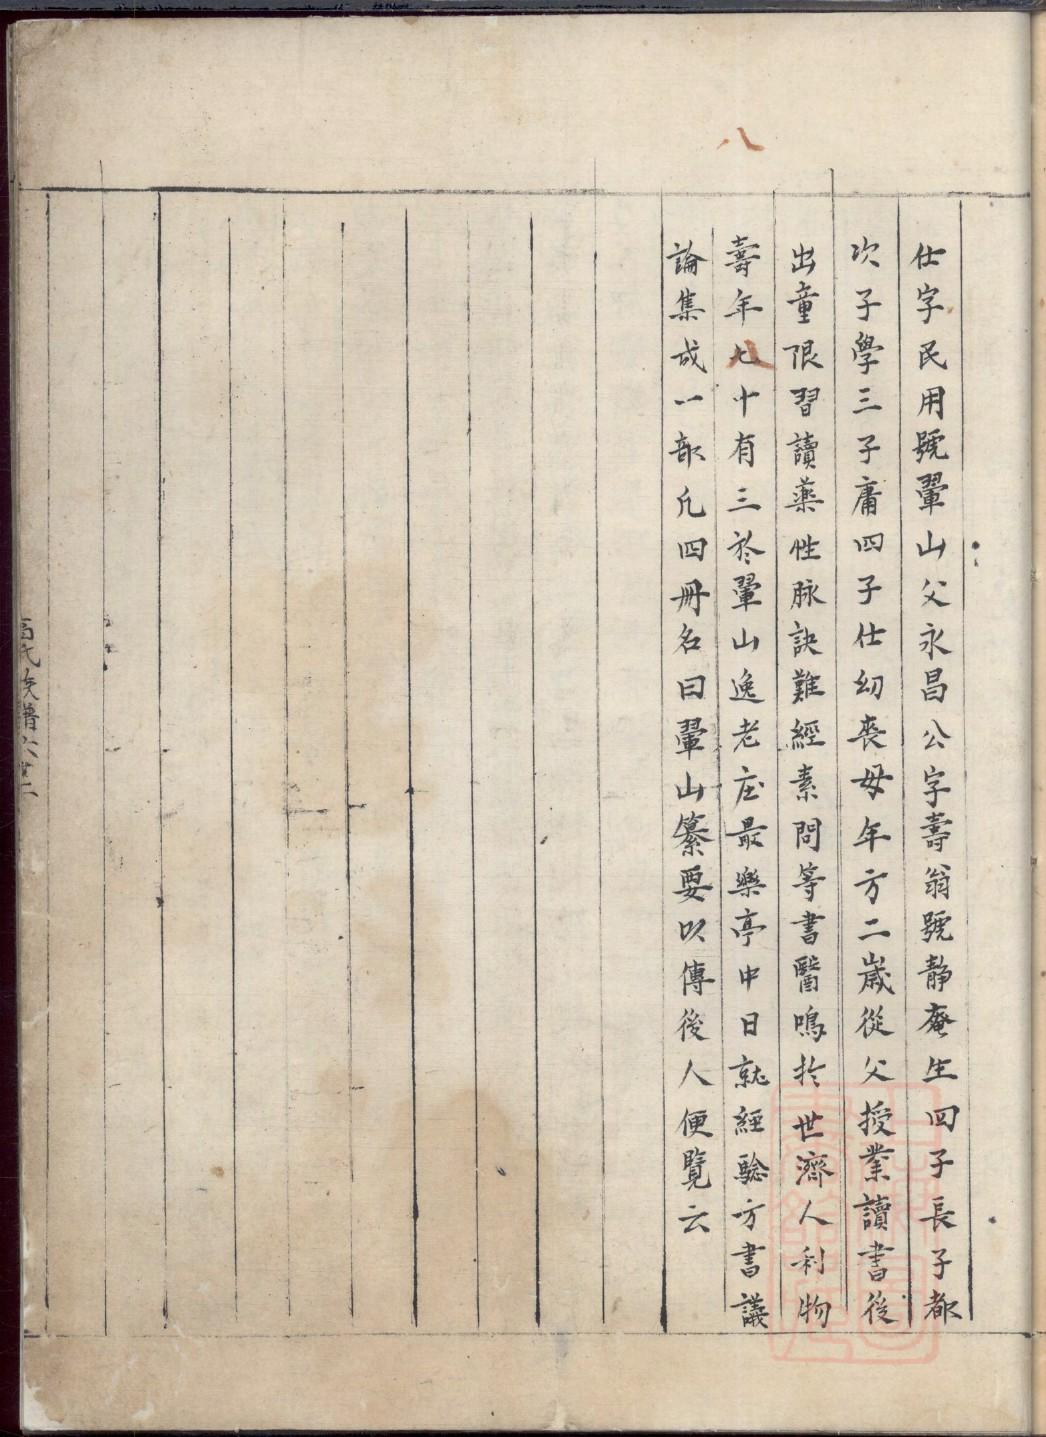 八
仕字民用號翬山父永昌公字壽翁號靜庵生四子長子都
次子學三子庸四子仕幼喪母年方二歲從父授業讀書後
出童限習讀藥性脉訣難經素問等書醫鳴扵世濟人利物
壽年七十有三於翬山逸老庄最樂亭中日就經驗方書議
論集成一部凡四冊名曰翬山纂要以傳後人便覽云
氏族譜六